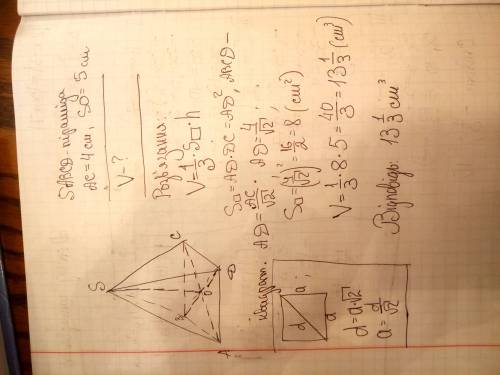 SABCD-піраміда
AC=4см, SO=5см
V-?
Розв'язання:
V=1/3·S□·h
S□=AD·DC=AD², ABCD-
квадрат. AD=AC/√2. AD=4/√2;
S□=(4/√2)²=16/2=8(см²)
V=1/3·8·5=40/3=13 1/3(см³)
Відповідь: 13 1/3 см³
S
C
O
A
D
d
a
a
;
d=a√2
a=d/√2